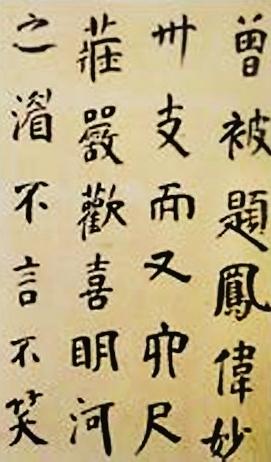 曾被題鳳偉妙
卅支而又卯尺
莊嚴歡喜明河
之湄不言不笑